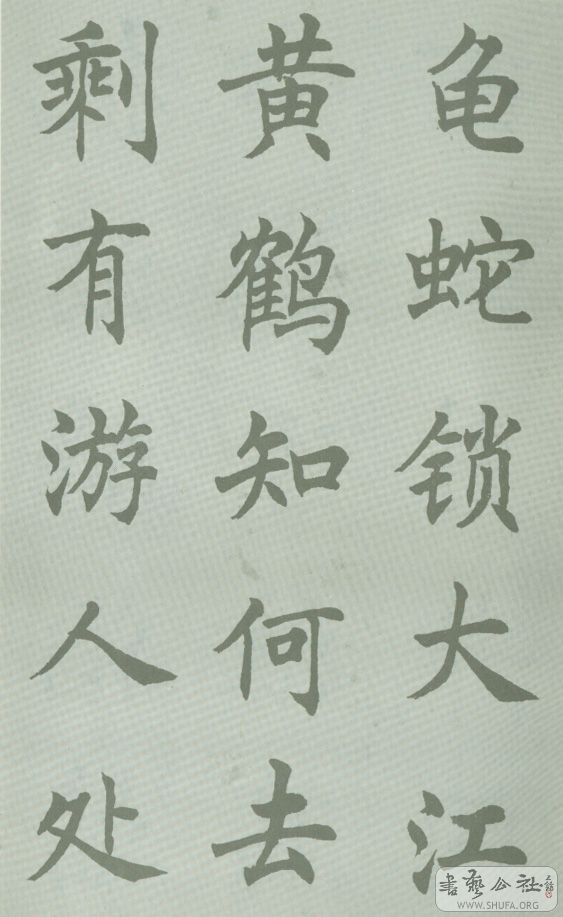 龟蛇锁大江
黄鹤知何去
剩有游人处
書藝公社
WWW.SHUFA.ORG